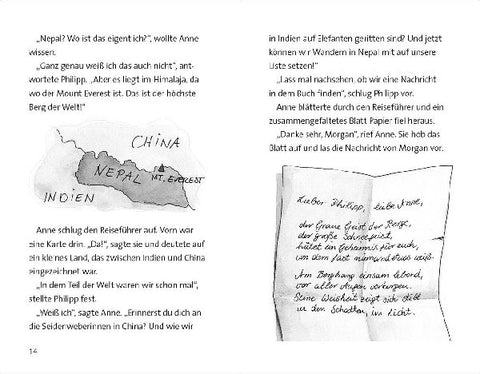 „Nepal? Wo ist das eigentlich?“, wollte Anne
wissen.
„Ganz genau weiß ich das auch nicht“, ant-
wortete Philipp. „Aber es liegt im Himalaja, da
wo der Mount Everest ist. Das ist der höchste
Berg der Welt!“
CHINA
NEPAL
MT. EVEREST
INDIEN
Anne schlug den Reiseführer auf. Vorn war
eine Karte drin. „Da!“, sagte sie und deutete auf
ein kleines Land, das zwischen Indien und China
eingezeichnet war.
„In dem Teil der Welt waren wir schon mal“,
stellte Philipp fest.
„Weiß ich“, sagte Anne. „Erinnerst du dich an
die Seidenweberinnen in China? Und wie wir
14
in Indien auf Elefanten geritten sind? Und jetzt
können wir Wandern in Nepal mit auf unsere
Liste setzen!“
„Lass mal nachsehen, ob wir eine Nachricht
in dem Buch finden“, schlug Philipp vor.
Anne blätterte durch den Reiseführer und ein
zusammengefaltetes Blatt Papier fiel heraus.
„Danke sehr, Morgan“, rief Anne. Sie hob das
Blatt auf und las die Nachricht von Morgan vor.
Lieber Philipp, liebe Anne,
der Graue Geist der Berge,
der große Schneegeist,
hütet ein Geheimnis für euch,
um dem fast niemand etwas weiß.
Am Berghang einsam lebend,
vor aller Augen verborgen.
Seine Weisheit zeigt sich still
in den Schatten, im Licht.